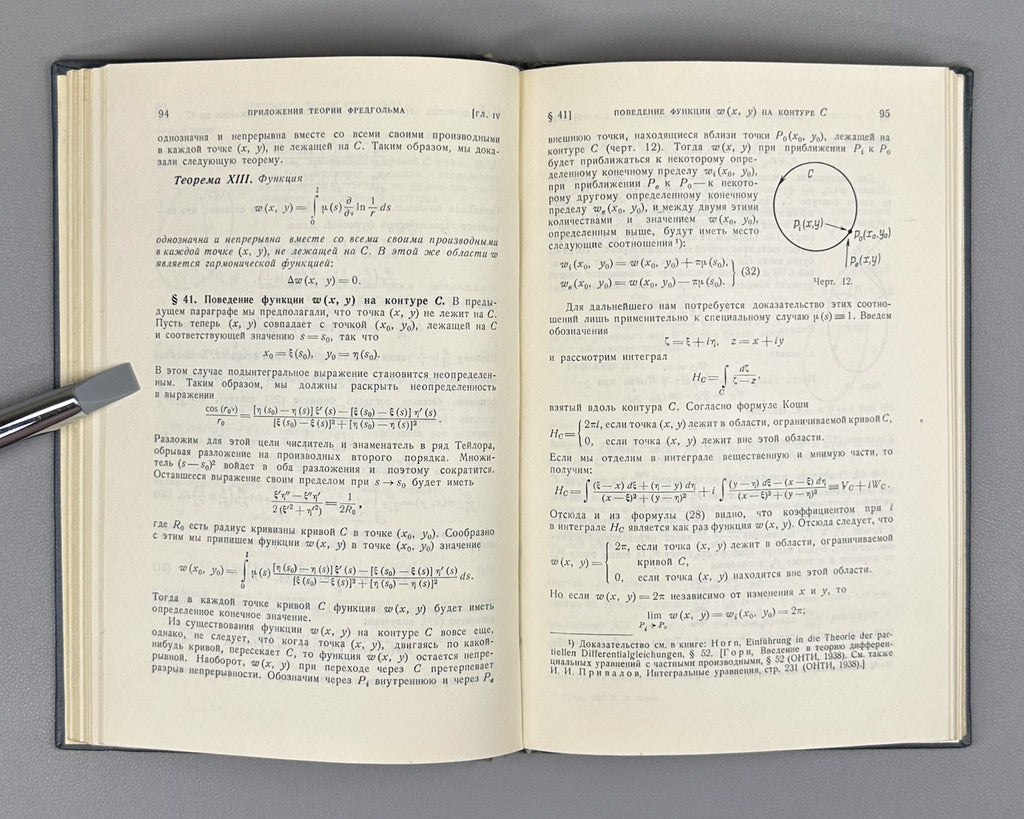 94 ПРИЛОЖЕНИЯ ТЕОРИИ ФРЕДГОЛЬМА [ГЛ. IV
однозначна и непрерывна вместе со всеми своими производными
в каждой точке (x, y), не лежащей на C. Таким образом, мы дока-
зали следующую теорему.
Теорема XIII. Функция
w(x, y) = ∫₀ˡ μ(s) ∂/∂ν ln 1/r ds
однозначна и непрерывна вместе со всеми своими производными
в каждой точке (x, y), не лежащей на C. В этой же области w
является гармонической функцией:
Δw(x, y) = 0.
§ 41. Поведение функции w(x, y) на контуре C. В преды-
дущем параграфе мы предполагали, что точка (x, y) не лежит на C.
Пусть теперь (x, y) совпадает с точкой (x₀, y₀), лежащей на C
и соответствующей значению s = s₀, так что
x₀ = ξ(s₀), y₀ = η(s₀).
В этом случае подынтегральное выражение становится неопределен-
ным. Таким образом, мы должны раскрыть неопределенность
в выражении
cos (r₀ν)/r₀ = {[η(s₀) — η(s)] ξ′(s) — [ξ(s₀) — ξ(s)] η′(s)}/{[ξ(s₀) — ξ(s)]² + [η(s₀) — η(s)]²}.
Разложим для этой цели числитель и знаменатель в ряд Тейлора,
обрывая разложение на производных второго порядка. Множи-
тель (s — s₀)² войдет в оба разложения и поэтому сократится.
Оставшееся выражение своим пределом при s → s₀ будет иметь
(ξ′η″ — ξ″η′)/(2(ξ′² + η′²)) = 1/(2R₀),
где R₀ есть радиус кривизны кривой C в точке (x₀, y₀). Сообразно
с этим мы припишем функции w(x, y) в точке (x₀, y₀) значение
w(x₀, y₀) = ∫₀ˡ μ(s) {[η(s₀) — η(s)] ξ′(s) — [ξ(s₀) — ξ(s)] η′(s)}/{[ξ(s₀) — ξ(s)]² + [η(s₀) — η(s)]²} ds.
Тогда в каждой точке кривой C функция w(x, y) будет иметь
определенное конечное значение.
Из существования функции w(x, y) на контуре C вовсе еще,
однако, не следует, что когда точка (x, y), двигаясь по какой-
нибудь кривой, пересекает C, то функция w(x, y) остается непре-
рывной. Наоборот, w(x, y) при переходе через C претерпевает
разрыв непрерывности. Обозначим через Pᵢ внутреннюю и через Pₑ
§ 41] ПОВЕДЕНИЕ ФУНКЦИИ w(x, y) НА КОНТУРЕ C 95
внешнюю точки, находящиеся вблизи точки P₀(x₀, y₀), лежащей на
контуре C (черт. 12). Тогда w(x, y) при приближении Pᵢ к P₀
будет приближаться к некоторому опре-
деленному конечному пределу wᵢ(x₀, y₀),
при приближении Pₑ к P₀ — к некото-
рому другому определенному конечному
пределу wₑ(x₀, y₀), и между двумя этими
количествами и значением w(x₀, y₀),
определенным выше, будут иметь место
следующие соотношения¹):
wᵢ(x₀, y₀) = w(x₀, y₀) + πμ(s₀),
wₑ(x₀, y₀) = w(x₀, y₀) — πμ(s₀). } (32)
C
Pᵢ(x,y)
P₀(x₀,y₀)
Pₑ(x,y)
Черт. 12.
Для дальнейшего нам потребуется доказательство этих соотно-
шений лишь применительно к специальному случаю μ(s) ≡ 1. Введем
обозначения
ζ = ξ + iη, z = x + iy
и рассмотрим интеграл
H_C = ∫_C dζ/(ζ — z),
взятый вдоль контура C. Согласно формуле Коши
H_C = { 2πi, если точка (x, y) лежит в области, ограничиваемой кривой C,
0, если точка (x, y) лежит вне этой области.
Если мы отделим в интеграле вещественную и мнимую части, то
получим:
H_C = ∫ ((ξ — x) dξ + (η — y) dη)/((x — ξ)² + (y — η)²) + i ∫ ((y — η) dξ — (x — ξ) dη)/((x — ξ)² + (y — η)²) = V_C + iW_C.
Отсюда и из формулы (28) видно, что коэффициентом при i
в интеграле H_C является как раз функция w(x, y). Отсюда следует, что
w(x, y) = { 2π, если точка (x, y) лежит в области, ограничиваемой
кривой C,
0, если точка (x, y) находится вне этой области.
Но если w(x, y) = 2π независимо от изменения x и y, то
lim w(x, y) = wᵢ(x₀, y₀) = 2π;
Pᵢ → P₀
¹) Доказательство см. в книге: Horn, Einführung in die Theorie der par-
tiellen Differentialgleichungen, § 52. [Горн, Введение в теорию дифферен-
циальных уравнений с частными производными, § 52 (ОНТИ, 1938). См. также
И. И. Привалов, Интегральные уравнения, стр. 231 (ОНТИ, 1938).]